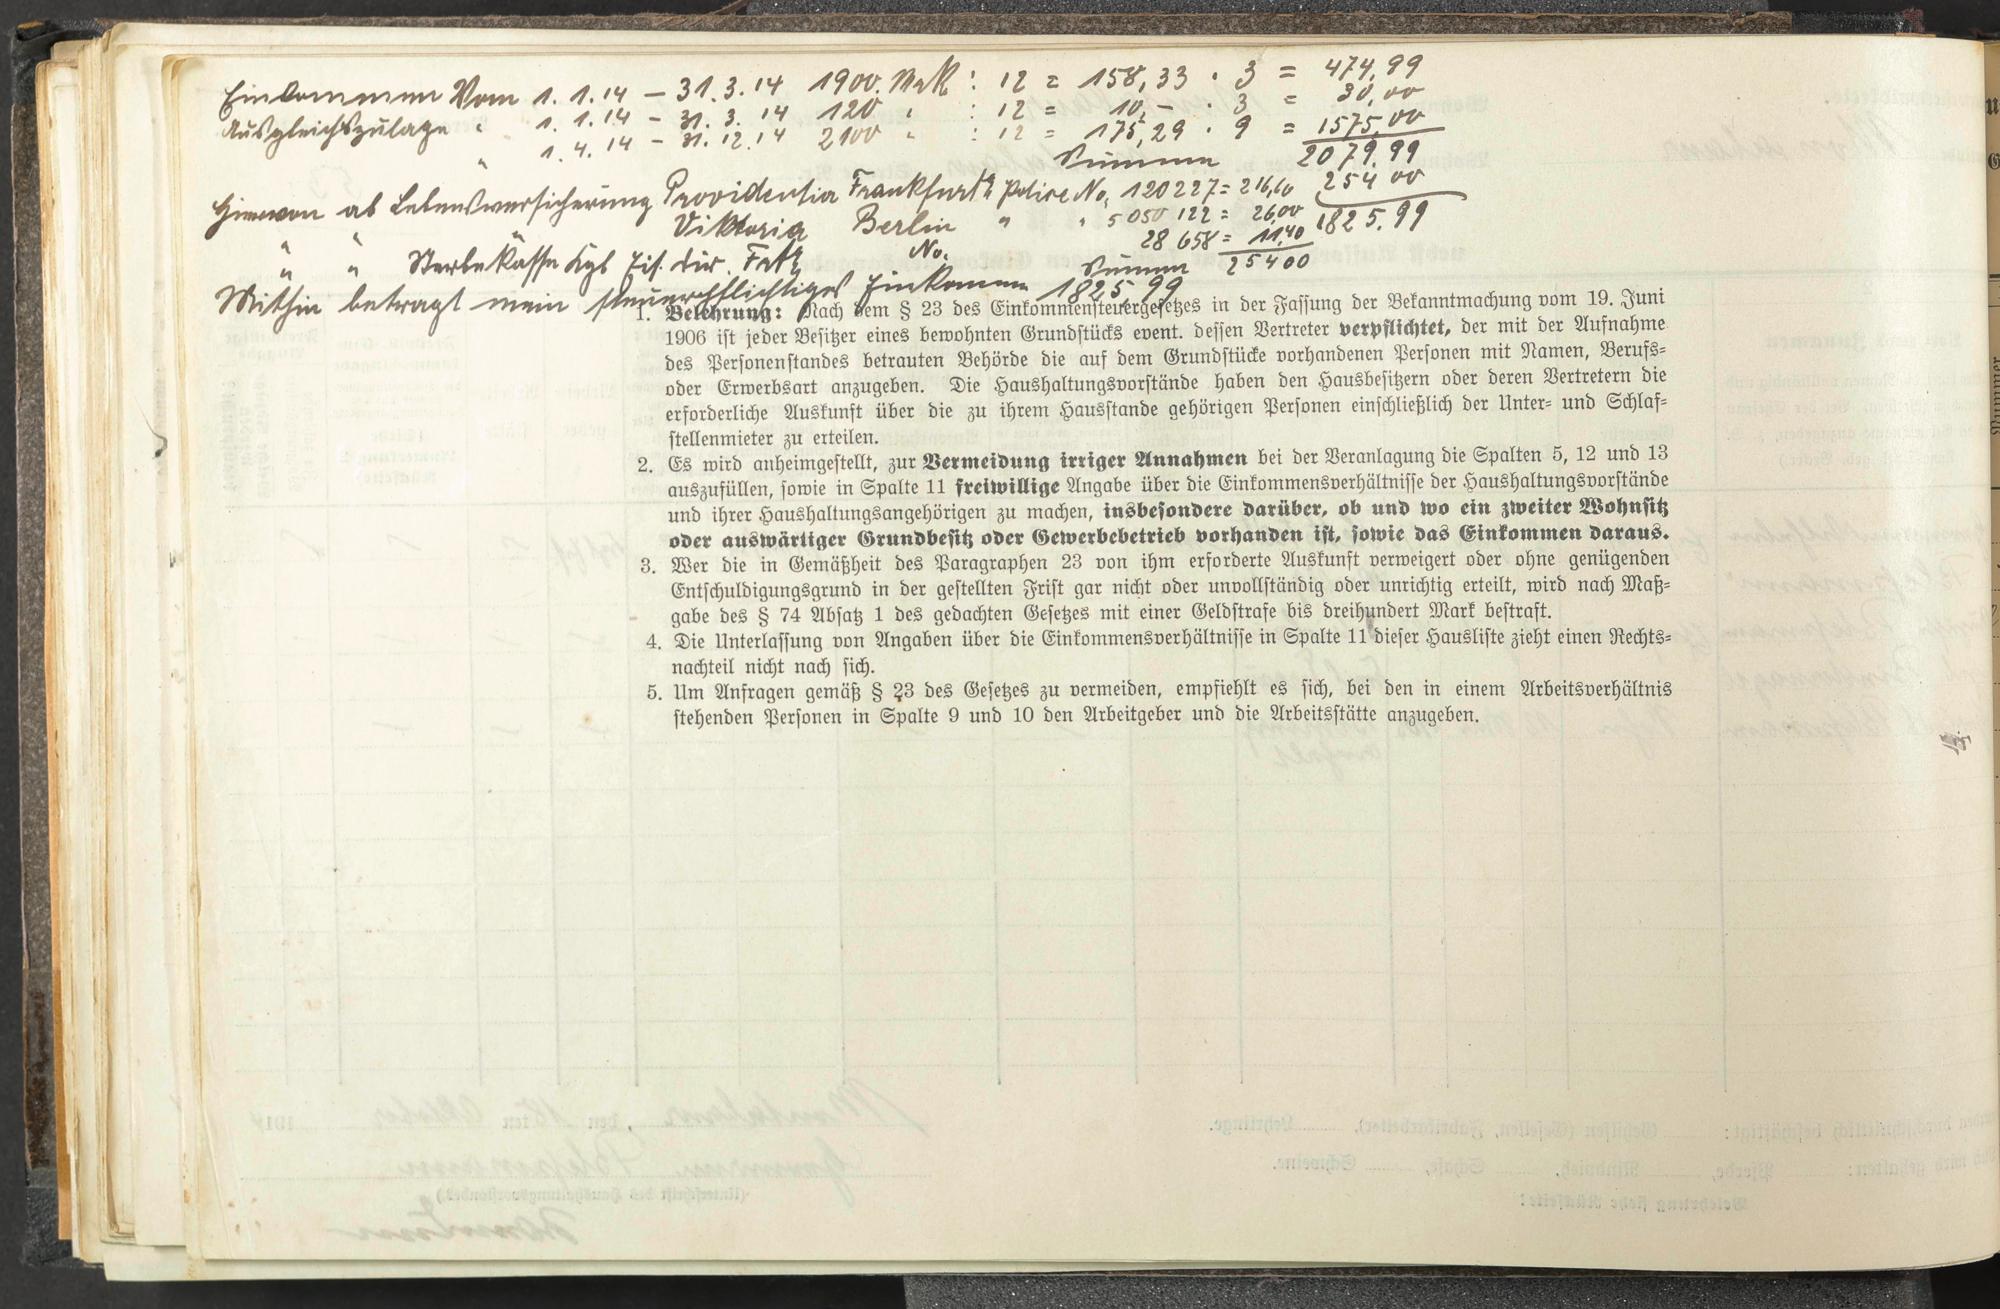 Einkommen Vom 1. 1. 14 – 31. 3. 14 1900. Mrk : 12 = 158,33 · 3 = 474,99
Ausgleichszulage " 1. 1. 14 – 31. 3. 14 120 " : 12 = 10,- · 3 = 30,00
" 1. 4. 14 – 31. 12. 14 2100 " : 12 = 175,29 · 9 = 1575,00
Summa 2079,99
Hiervon ab Lebensversicherung Providentia Frankfurt Police No. 120227 = 216,60 254 00
" " " Viktoria Berlin " " 5 050 122 = 26,00 1825,99
" " Sterbekasse Kgl Eis. Dir. Fft No. 28 658 = 11,40
Summa 254 00
Mithin betragt mein steuerpflichtiges Einkommen 1825,99
1. Belehrung: Nach dem § 23 des Einkommensteuergesetzes in der Fassung der Bekanntmachung vom 19. Juni
1906 ist jeder Besitzer eines bewohnten Grundstücks event. dessen Vertreter verpflichtet, der mit der Aufnahme
des Personenstandes betrauten Behörde die auf dem Grundstücke vorhandenen Personen mit Namen, Berufs-
oder Erwerbsart anzugeben. Die Haushaltungsvorstände haben den Hausbesitzern oder deren Vertretern die
erforderliche Auskunft über die zu ihrem Hausstande gehörigen Personen einschließlich der Unter- und Schlaf-
stellenmieter zu erteilen.
2. Es wird anheimgestellt, zur Vermeidung irriger Annahmen bei der Veranlagung die Spalten 5, 12 und 13
auszufüllen, sowie in Spalte 11 freiwillige Angabe über die Einkommensverhältnisse der Haushaltungsvorstände
und ihrer Haushaltungsangehörigen zu machen, insbesondere darüber, ob und wo ein zweiter Wohnsitz
oder auswärtiger Grundbesitz oder Gewerbebetrieb vorhanden ist, sowie das Einkommen daraus.
3. Wer die in Gemäßheit des Paragraphen 23 von ihm erforderte Auskunft verweigert oder ohne genügenden
Entschuldigungsgrund in der gestellten Frist gar nicht oder unvollständig oder unrichtig erteilt, wird nach Maß-
gabe des § 74 Absatz 1 des gedachten Gesetzes mit einer Geldstrafe bis dreihundert Mark bestraft.
4. Die Unterlassung von Angaben über die Einkommensverhältnisse in Spalte 11 dieser Hausliste zieht einen Rechts-
nachteil nicht nach sich.
5. Um Anfragen gemäß § 23 des Gesetzes zu vermeiden, empfiehlt es sich, bei den in einem Arbeitsverhältnis
stehenden Personen in Spalte 9 und 10 den Arbeitgeber und die Arbeitsstätte anzugeben.